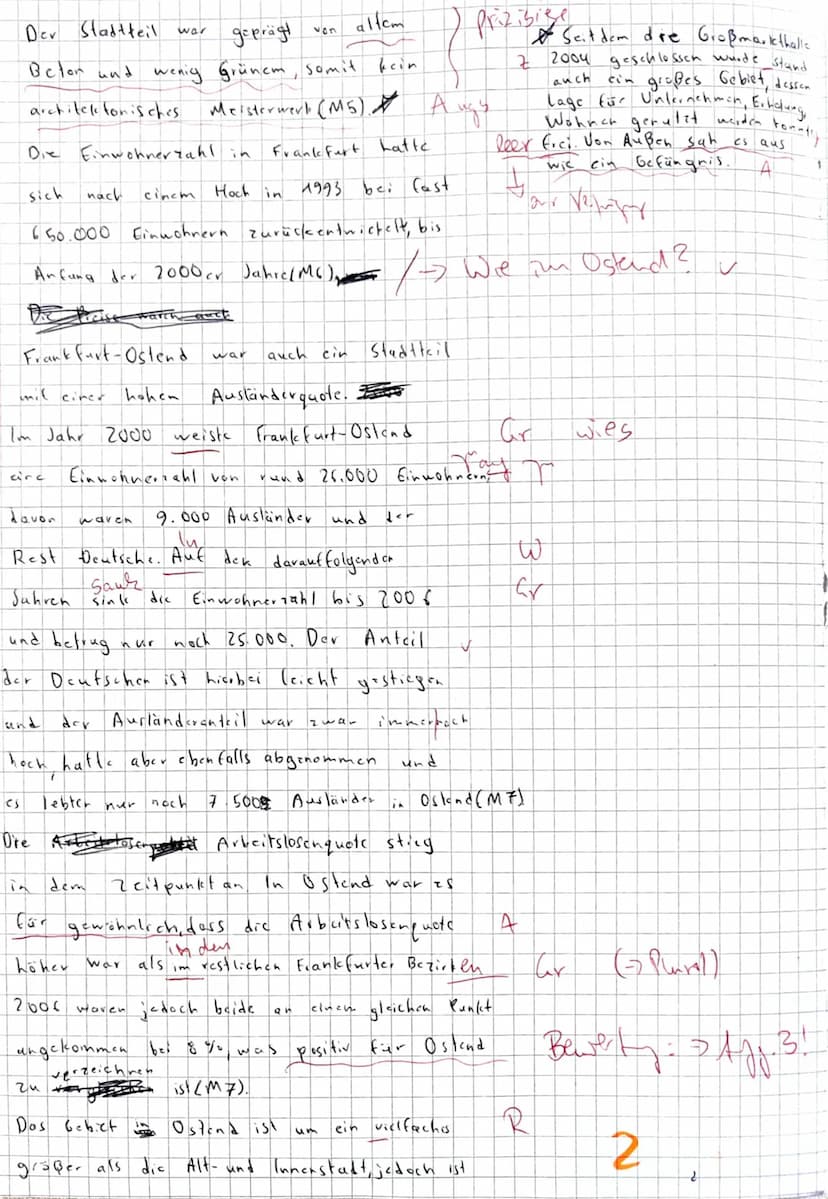 Der Stadtteil war geprägt von altem
Beton und wenig Grünem, somit kein
architektonisches Meisterwerk (M5).
Die Einwohnerzahl in Frankfurt hatte
sich nach einem Hoch in 1993 bei fast
650.000 Einwohnern zurückentwickelt, bis
Anfang der 2000er Jahre (M6).
Frankfurt-Ostend war auch ein Stadtteil
mit einer hohen Ausländerquote.
Im Jahr 2000 weiste Frankfurt-Ostend
eine Einwohnerzahl von rund 26.000 Einwohnern,
davon waren 9.000 Ausländer und der
Rest Deutsche. Auf den darauffolgenden
Jahren sink die Einwohnerzahl bis 2006
und betrug nur noch 25.000. Der Anteil
der Deutschen ist hierbei leicht gestiegen
und der Ausländeranteil war zwar immernoch
hoch, hatte aber ebenfalls abgenommen und
es lebten nur noch 7.500 Ausländer in Ostend (M7)
Die Arbeitslosenquote stieg
in dem Zeitpunkt an. In Ostend war es
für gewöhnlich, dass die Arbeitslosenquote
höher war als im restlichen Frankfurter Bezirken
2006 waren jedoch beide an einem gleichen Punkt
angekommen bei 8 %, was positiv für Ostend
zu verzeichnen ist (M7).
Das Gebiet Ostend ist um ein vielfaches
größer als die Alt- und Innenstadt, jedoch ist
Seitdem die Großmarkthalle
2004 geschlossen wurde stand
auch ein großes Gebiet, dessen
Lage für Unternehmen, Erholung,
Wohnen genutzt werden konnte,
leer frei. Von Außen sah es aus
wie ein Gefängnis.
Z
A
→ Wie im Ostend? ✓
Gr wies
In
W
sank
Gr
✓
A
in den
Gr (→ Plural)
Bewertung: → Afg. 3!
R
2